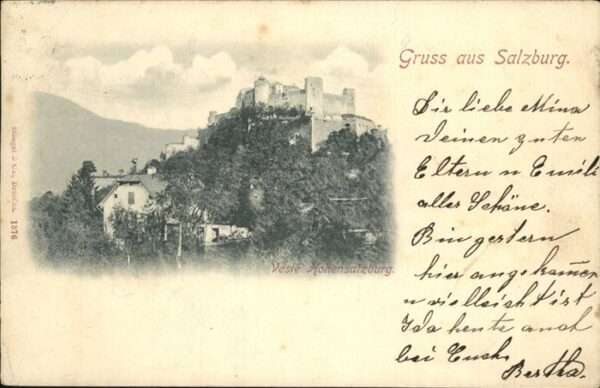 Gruss aus Salzburg.
Dir liebe Mina
Deinen guten
Eltern u Emili
alles Schöne.
Bin gestern
hier angekom̅en
u vielleicht ist
Ida heute auch
bei Euch.
Bertha.
Veste Hohensalzburg.
1376